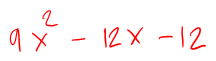 9x² - 12x - 12